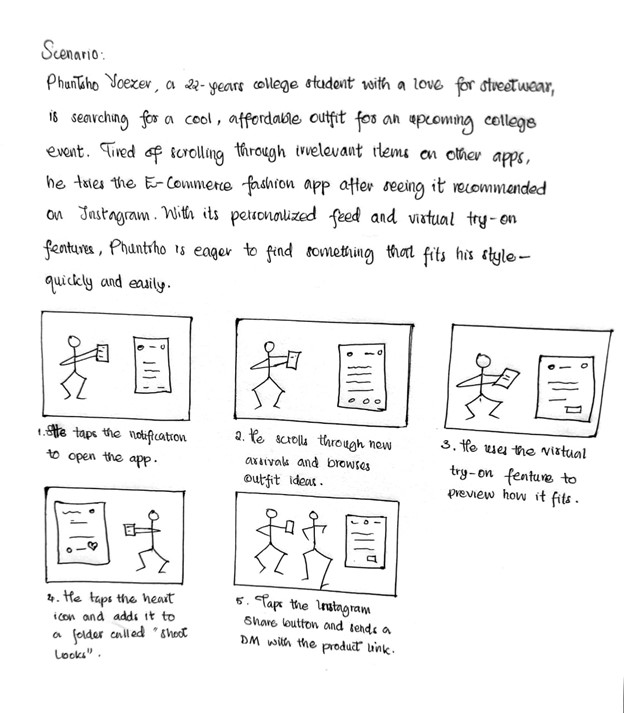 Scenario:
Phuntsho Yoezer, a 22-years college student with a love for streetwear,
is searching for a cool, affordable outfit for an upcoming college
event. Tired of scrolling through irrelevant items on other apps,
he tries the E-Commerce fashion app after seeing it recommended
on Instagram. With its personalized feed and virtual try-on
features, Phuntsho is eager to find something that fits his style-
quickly and easily.
1. He taps the notification
to open the app.
2. He scrolls through new
arrivals and browses
outfit ideas.
3. He uses the virtual
try-on feature to
preview how it fits.
4. He taps the heart
icon and adds it to
a folder called "Shoot
Looks".
5. Taps the Instagram
Share button and sends a
DM with the product link.